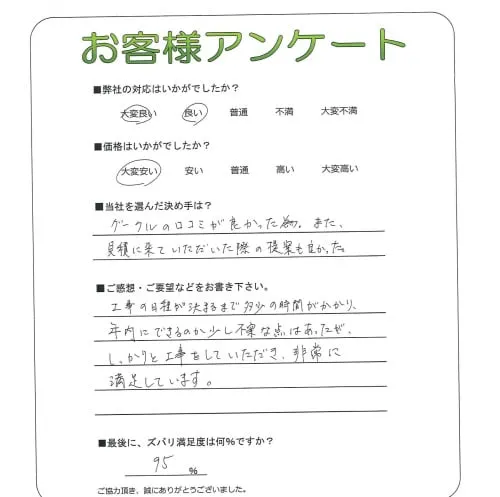 お客様アンケート
■弊社の対応はいかがでしたか？
大変良い 良い 普通 不満 大変不満
■価格はいかがでしたか？
大変安い 安い 普通 高い 大変高い
■当社を選んだ決め手は？
グーグルの口コミが良かった為。また、
見積に来ていただいた際の提案も良かった。
■ご感想・ご要望などをお書き下さい。
工事の日程が決まるまで多少の時間がかかり、
年内にできるのか少し不安な点はあったが、
しっかりと工事をしていただき、非常に
満足しています。
■最後に、ズバリ満足度は何％ですか？
95 ％
ご協力頂き、誠にありがとうございました。